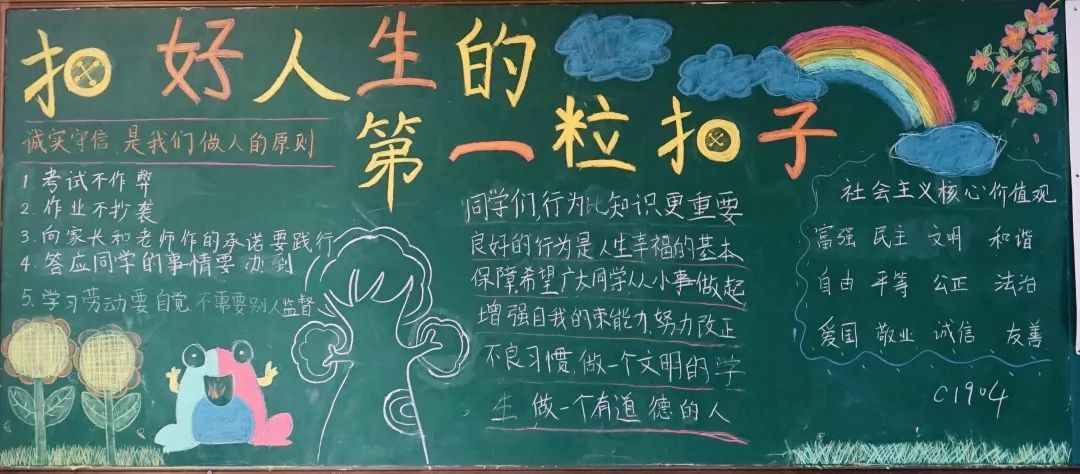 扣好人生的
第一粒扣子
诚实守信 是我们做人的原则
1. 考试不作弊
2. 作业不抄袭
3. 向家长和老师作的承诺要践行
4. 答应同学的事情要办到
5. 学习劳动要自觉 不需要别人监督
同学们,行为比知识更重要
良好的行为是人生幸福的基本
保障希望广大同学从小事做起
增强自我约束能力,努力改正
不良习惯做一个文明的学
生 做一个有道德的人
社会主义核心价值观
富强 民主 文明 和谐
自由 平等 公正 法治
爱国 敬业 诚信 友善
C1904